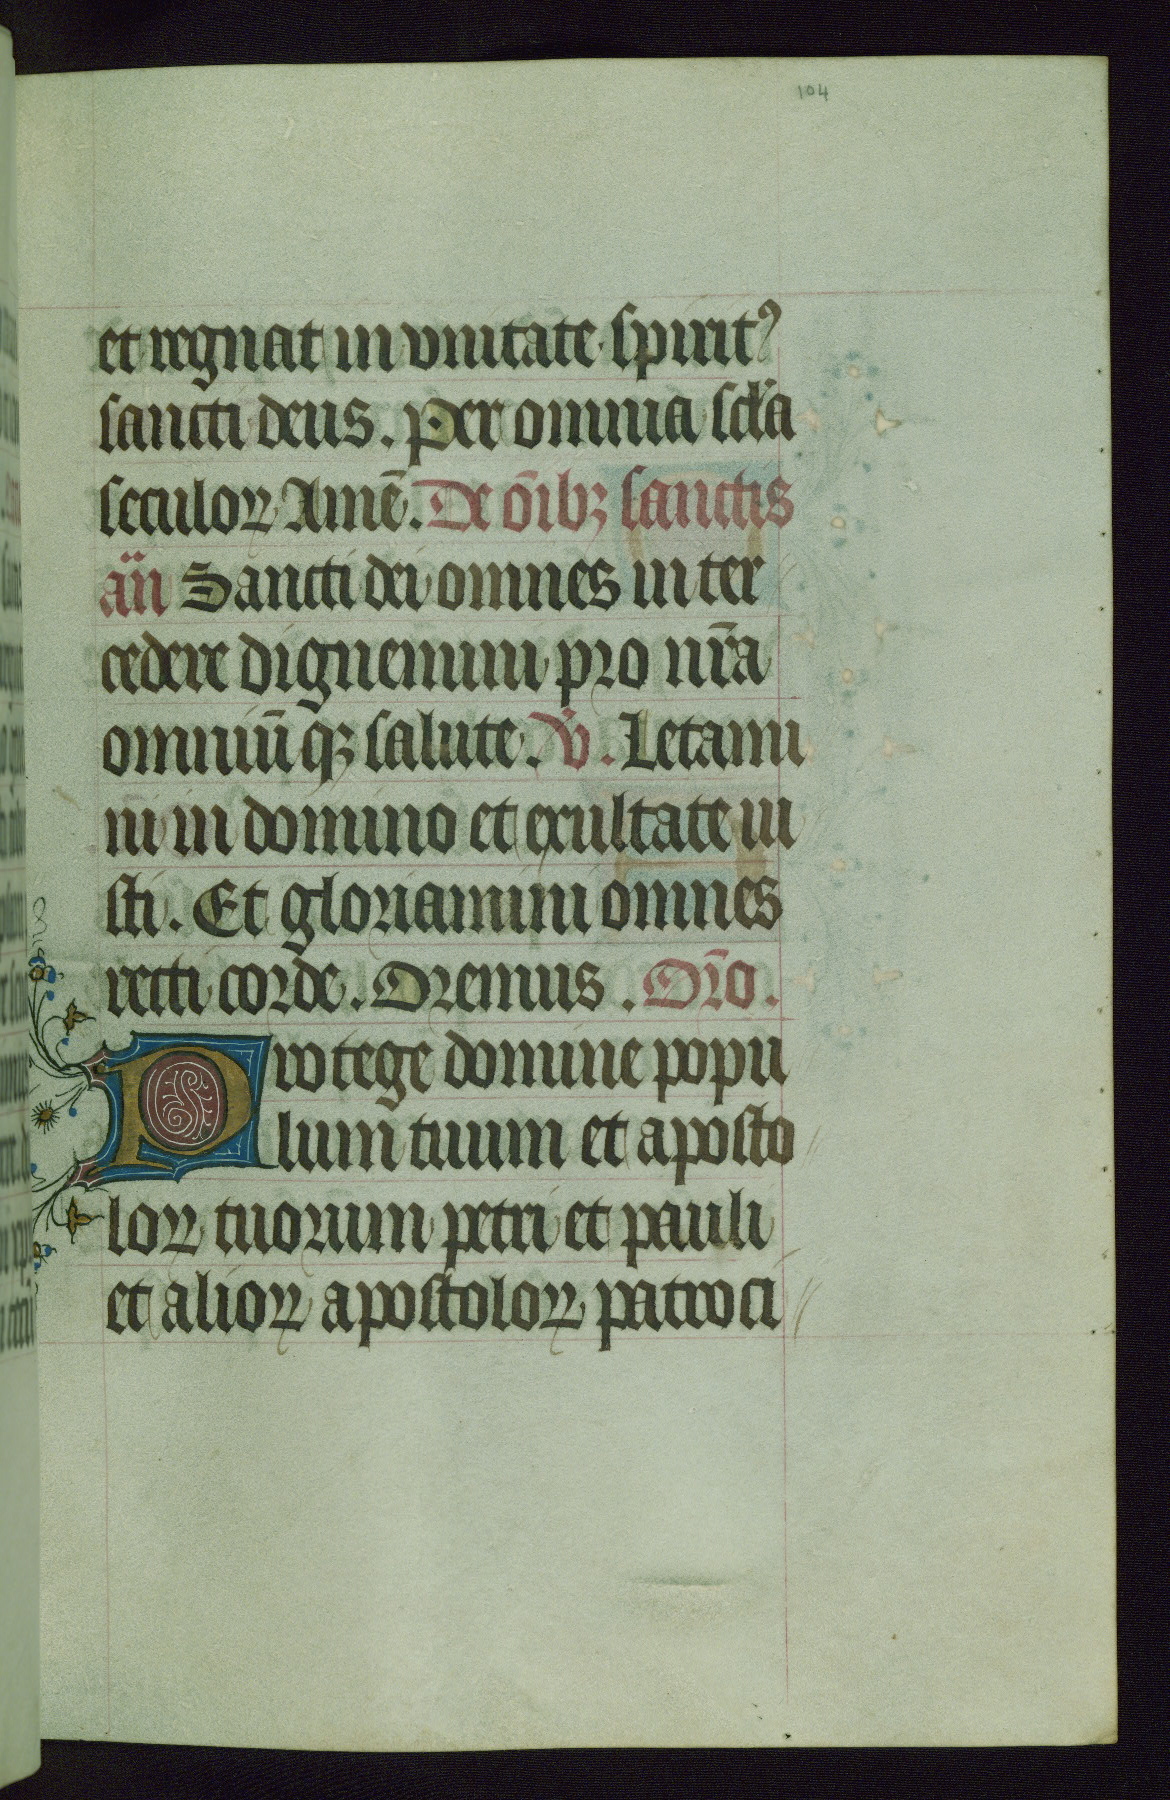 104
et regnat in vnitate spiritꝰ
sancti deus. Per omnia scl̓a
seculoꝝ Amē. De oīb⁊ sanctis
añ Sancti dei omnes inter
cedere dignemini pro nr̄a
omniūq⁊ salute. ℣. Letami
ni in domino et exultate iu
sti. Et gloriamini omnes
recti corde. Oremus. Or̄o.
Protege domine popu
lum tuum et aposto
loꝝ tuorum petri et pauli
et alioꝝ apostoloꝝ patroci